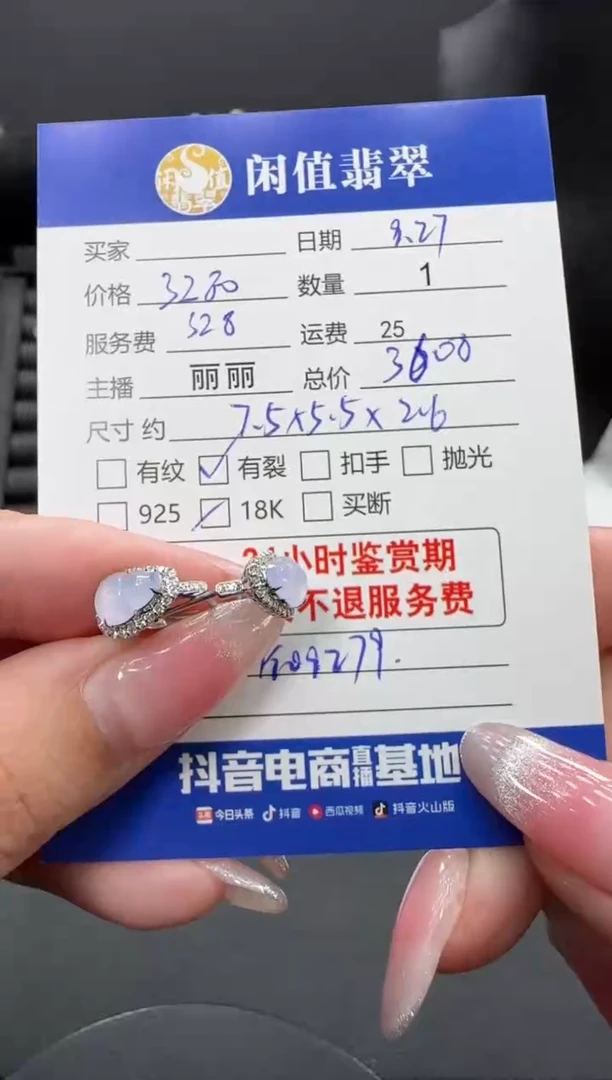 闲值翡翠
闲值翡翠
买家 日期 9.27
价格 3280 数量 1
服务费 328 运费 25
主播 丽丽 总价 3600
尺寸 约 7.5×5.5×2.6
有纹 有裂 扣手 抛光
925 18K 买断
小时鉴赏期
不退服务费
抖音电商直播基地
今日头条 抖音 西瓜视频 抖音火山版